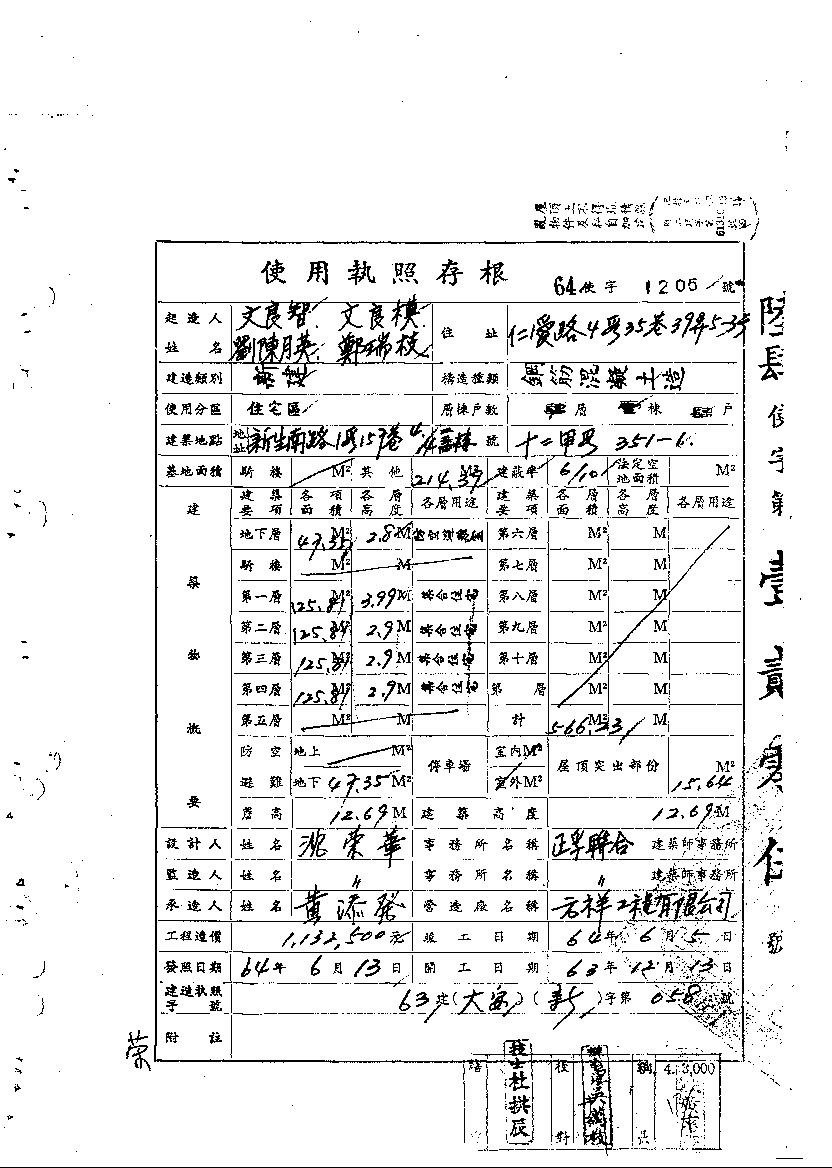 使用執照存根 64使字 1205 號
起造人姓名 文良智 文良模 劉陳月英 鄭瑞枝 住址 仁愛路4段35巷39弄5-3號
建造類別 新建 構造種類 鋼筋混凝土造
使用分區 住宅區 層棟戶數 層 棟 戶
建築地點 地址 新生南路1段157巷 號 十二甲段 351-6
基地面積 騎樓 M² 其他 214.37 M² 建蔽率 6/10 法定空地面積 M²
建築物概要
建築要項 各項面積 各層高度 各層用途 建築要項 各層面積 各層高度 各層用途
地下層 47.35 M² 2.8 M 第六層 M² M
騎樓 M² M 第七層 M² M
第一層 125.81 M² 3.99 M 集合住宅 第八層 M² M
第二層 125.81 M² 2.9 M 集合住宅 第九層 M² M
第三層 125.81 M² 2.9 M 集合住宅 第十層 M² M
第四層 125.81 M² 2.9 M 集合住宅 第 層 M² M
第五層 M² M 計 566.23 M² M
防空避難 地上 M² 停車場 室內 M² 屋頂突出部份 M²
地下 47.35 M² 室外 M² 15.64
簷高 12.69 M 建築高度 12.69 M
設計人 姓名 沈榮華 事務所名稱 聯合 建築師事務所
監造人 姓名 〃 事務所名稱 〃 建築師事務所
承造人 姓名 黃添發 營造廠名稱 元祥工程有限公司
工程造價 1,132,500元 竣工日期 64年 6月 5日
發照日期 64年 6月 13日 開工日期 63年 12月 13日
建造執照字號 63建(大安)(新)字第 058 號
附註
榮
技士杜拱辰
校對
4. 3,000
陸肆使字第壹貳零伍號